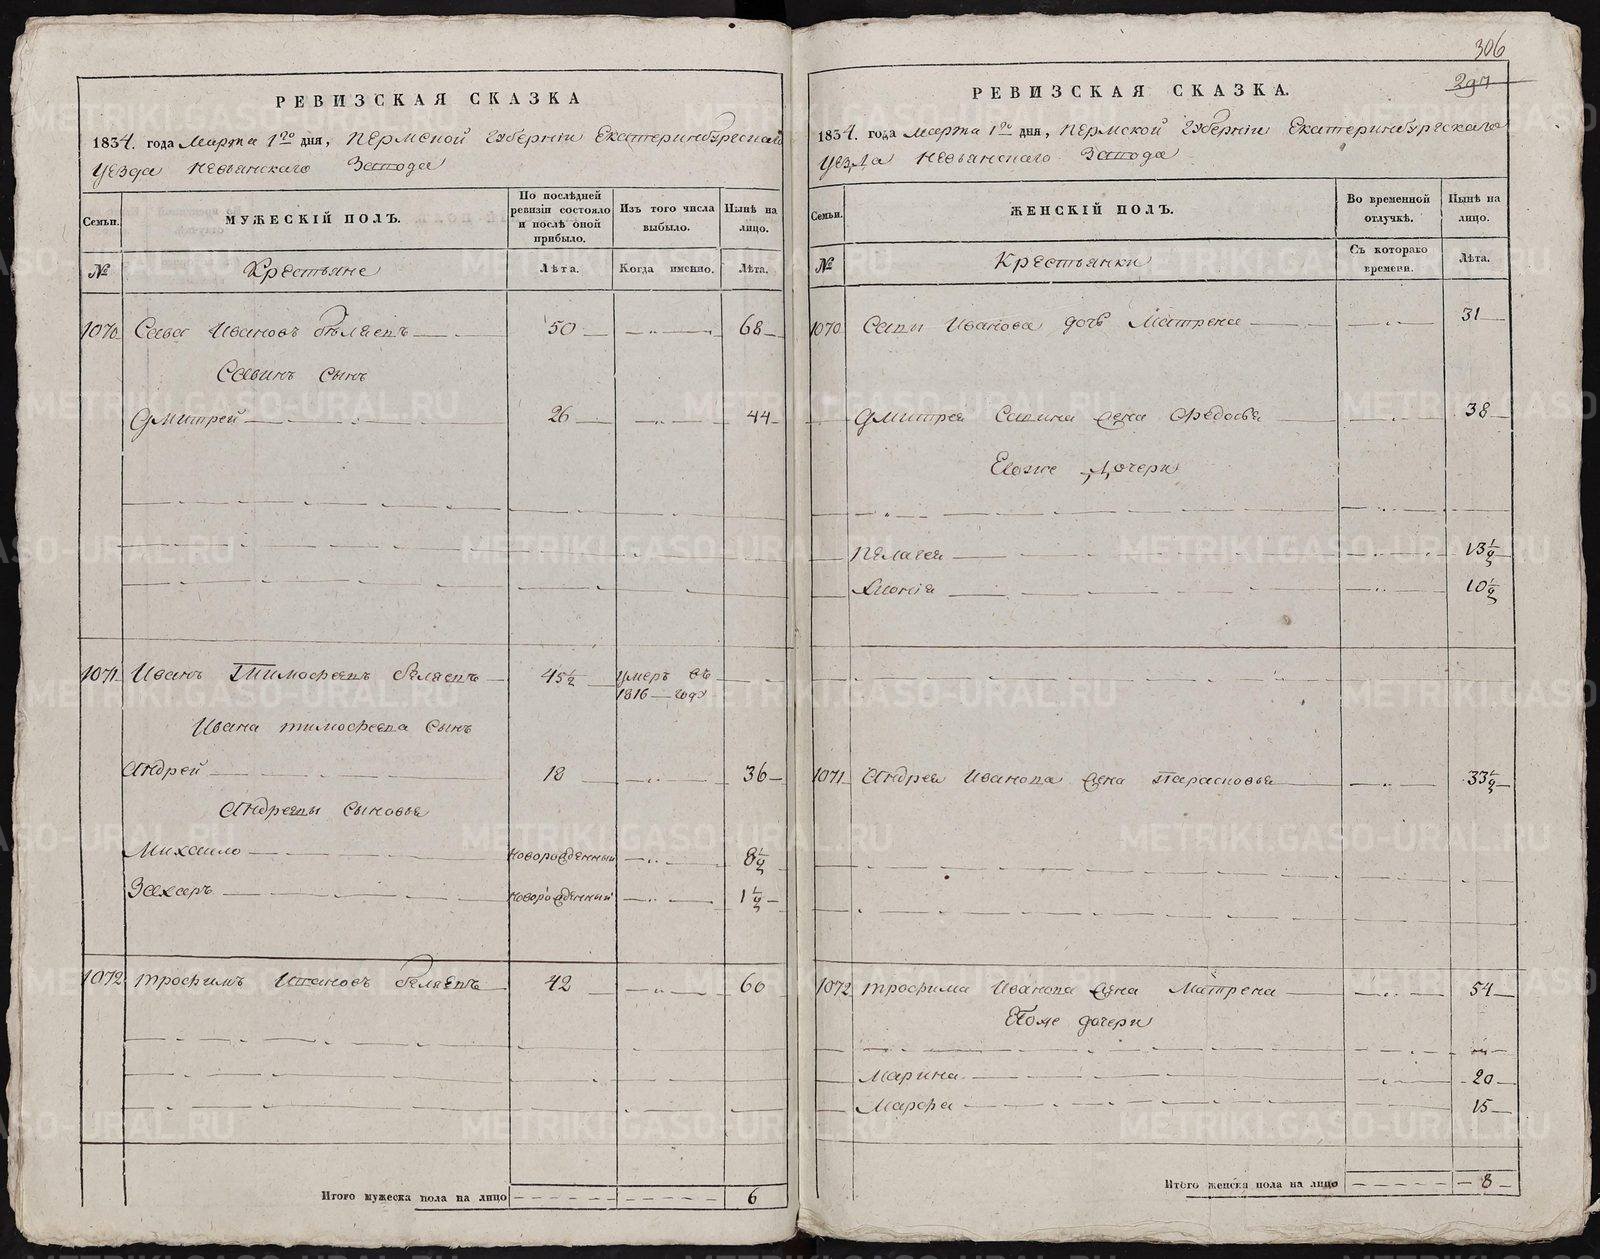 306
297
РЕВИЗСКАЯ СКАЗКА
1834. года Марта 1го дня, Пермской Губернии Екатеринбургскаго
уезда Невьянскаго Завода
Семьи.
МУЖЕСКІЙ ПОЛЪ.
По послѣдней ревизіи состояло и послѣ оной прибыло.
Изъ того числа выбыло.
Нынѣ на лицо.
№
Крестьяне
Лѣта.
Когда именно.
Лѣта.
1070 Сава Ивановъ Бѣляевъ 50 68
Савинъ сынъ
Дмитрей 26 44
1071 Иванъ Тимофеевъ Беляевъ 45½ умеръ въ 1816 году
Ивана Тимофеева сынъ
Андрей 18 36
Андреевы сыновья
Михайло новорожденный 8½
Захаръ новорожденный 1½
1072 Трофимъ Ивановъ Беляевъ 42 60
Итого мужеска пола на лицо 6
РЕВИЗСКАЯ СКАЗКА.
1834. года Марта 1го дня, Пермской Губерніи Екатеринбургскаго
уезда Невьянскаго Завода
Семьи.
ЖЕНСКІЙ ПОЛЪ.
Во временной отлучкѣ.
Нынѣ на лицо.
№
Крестьянки
Съ котораго времени.
Лѣта.
1070 Савы Иванова дочь Матрена 31
Дмитрея Савина жена Федосья 38
Егоже дочери
Пелагея 13½
Хионія 10½
1071 Андрея Иванова жена Парасковья 33½
1072 Трофима Иванова жена Матрена 54
Егоже дочери
Марина 20
Марфа 15
Итого женска пола на лицо 8
METRIKI.GASO-URAL.RU